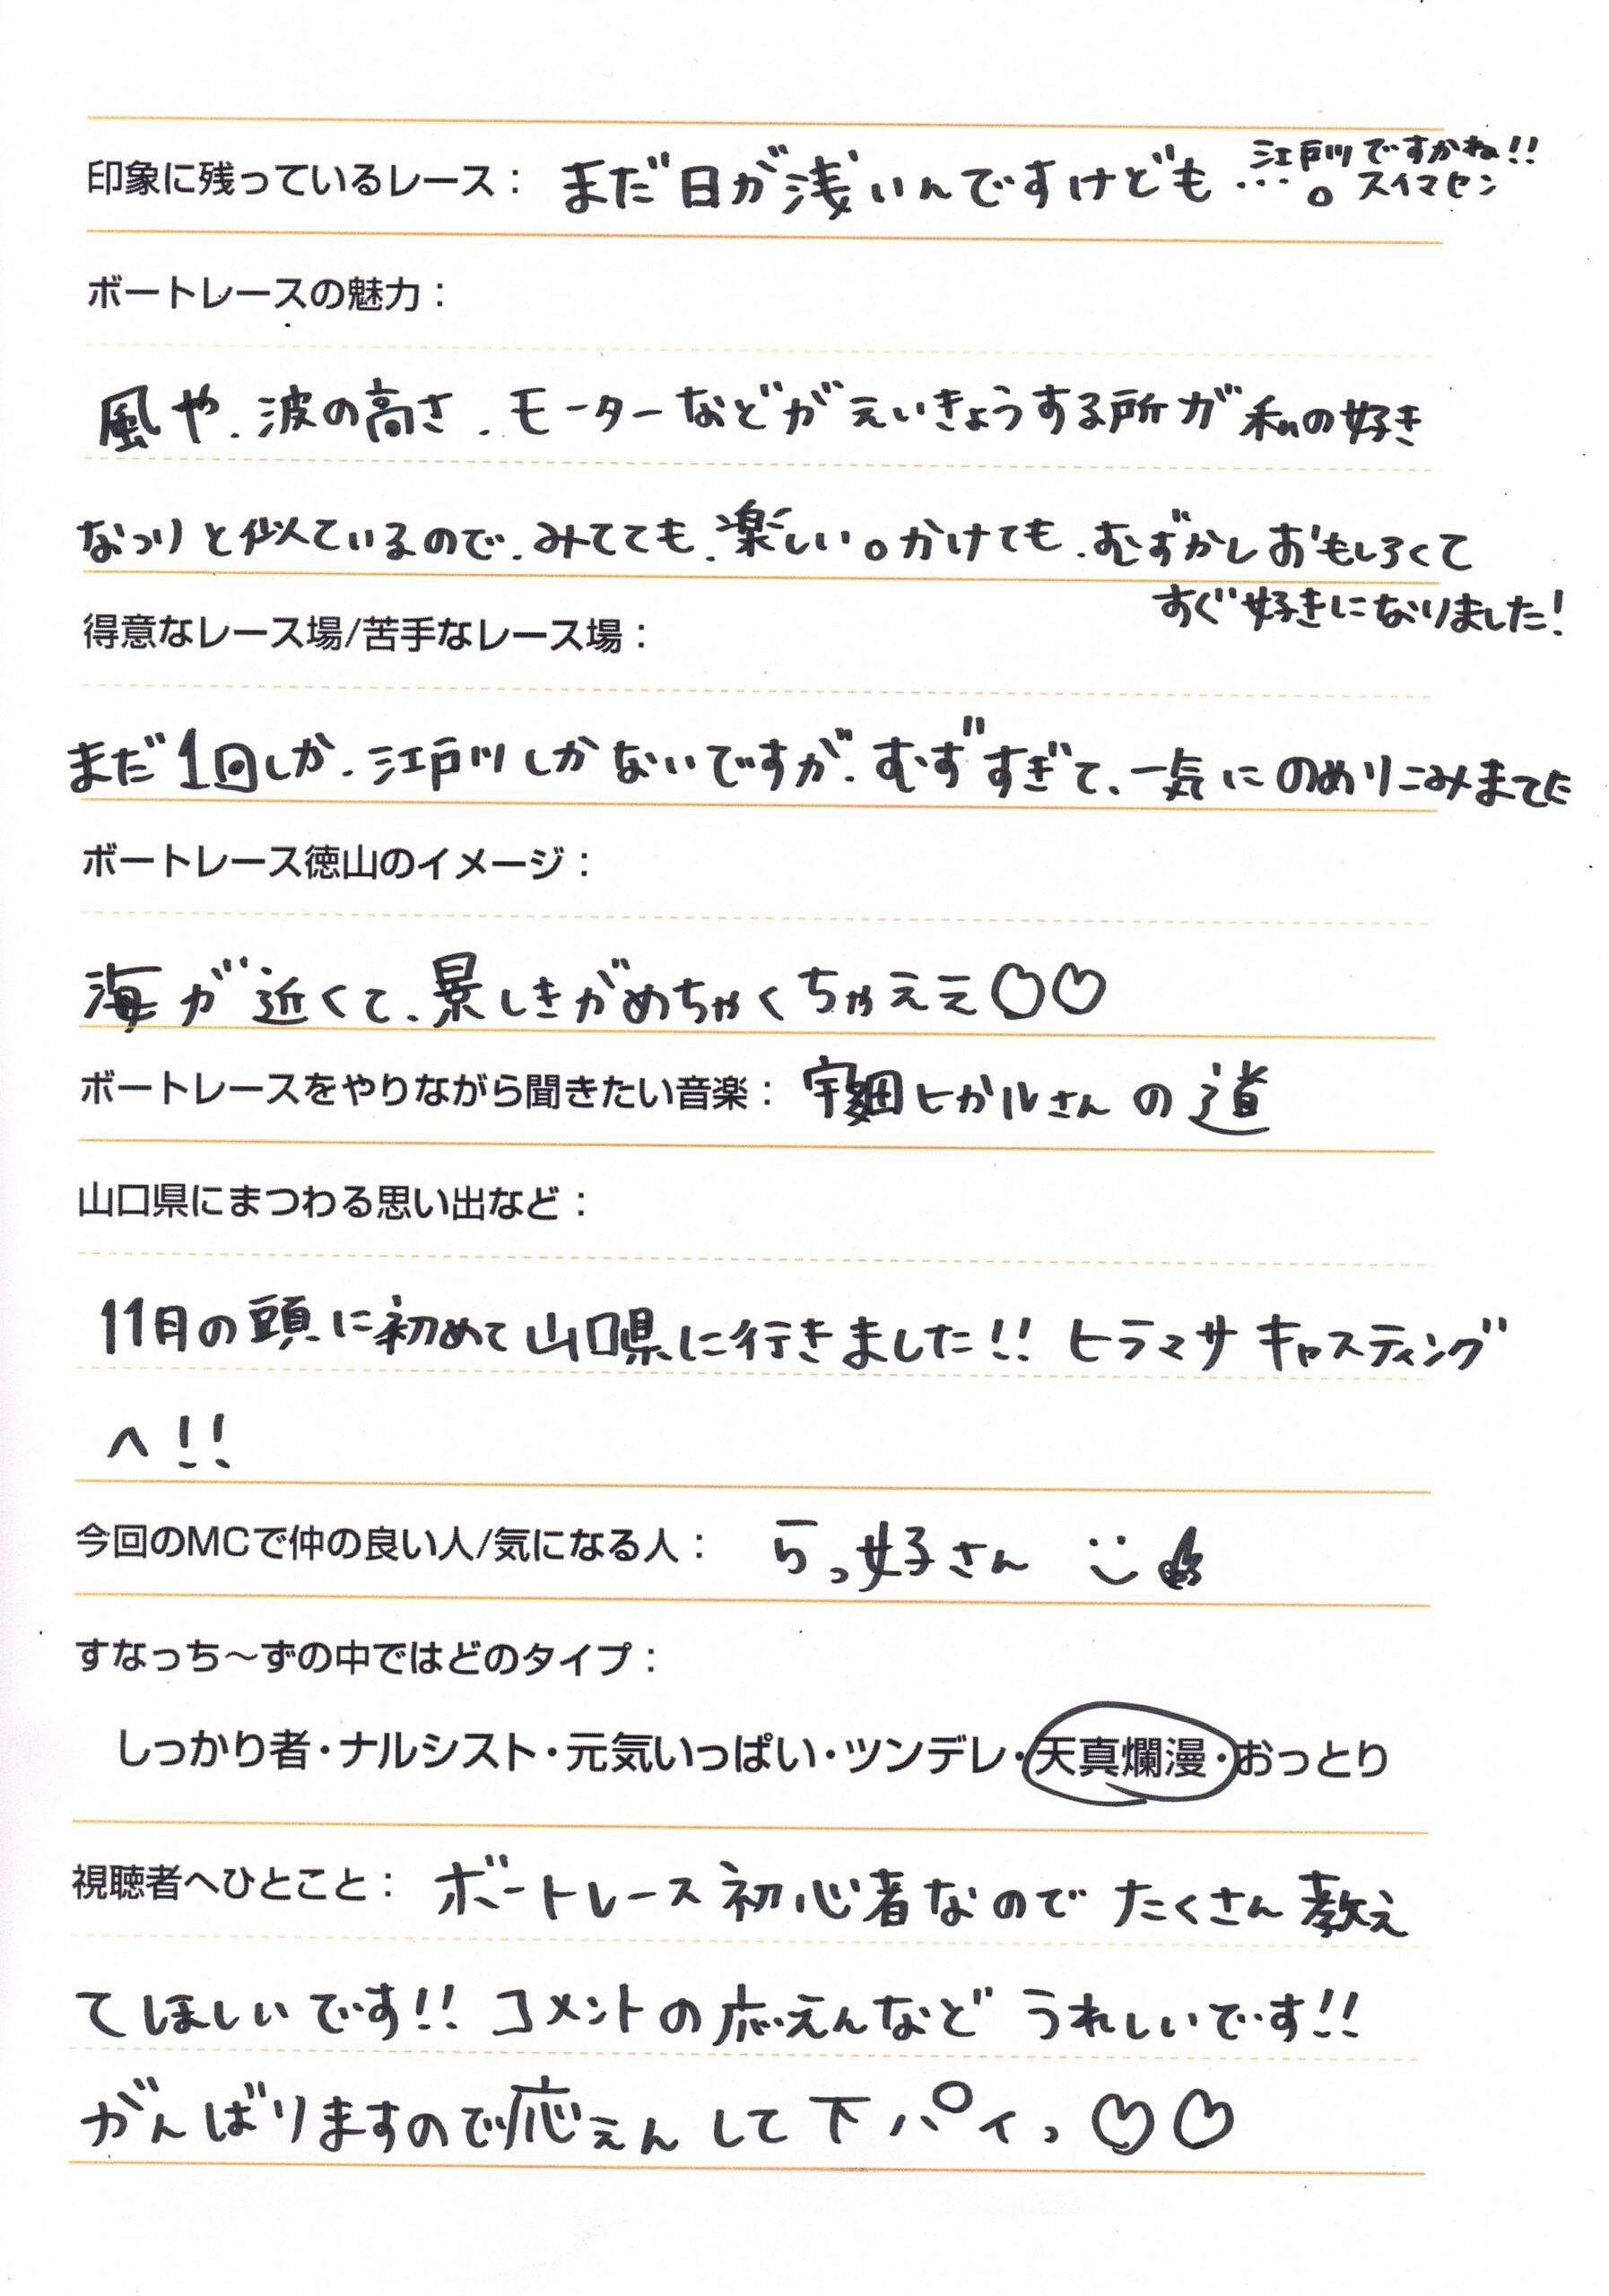 印象に残っているレース： まだ日が浅いんですけども…。江戸川ですかね!!
スイマセン
ボートレースの魅力：
風や、波の高さ、モーターなどがえいきょうする所が私の好き
なつりと似ているので、みてても、楽しい。かけても、むずかしおもしろくて
すぐ好きになりました!
得意なレース場/苦手なレース場：
まだ1回しか、江戸川しかないですが、むずすぎて、一気にのめりこみまてた
ボートレース徳山のイメージ：
海が近くて、景しきがめちゃくちゃええ♡♡
ボートレースをやりながら聞きたい音楽： 宇多田ヒカルさんの道
山口県にまつわる思い出など：
11月の頭に初めて山口県に行きました!! ヒラマサキャスティング
へ!!
今回のMCで仲の良い人/気になる人： らっ好さん
すなっち～ずの中ではどのタイプ：
しっかり者・ナルシスト・元気いっぱい・ツンデレ・天真爛漫・おっとり
視聴者へひとこと： ボートレース初心者なのでたくさん教え
てほしいです!! コメントの応えんなど うれしいです!!
がんばりますので応えんして下パイっ♡♡